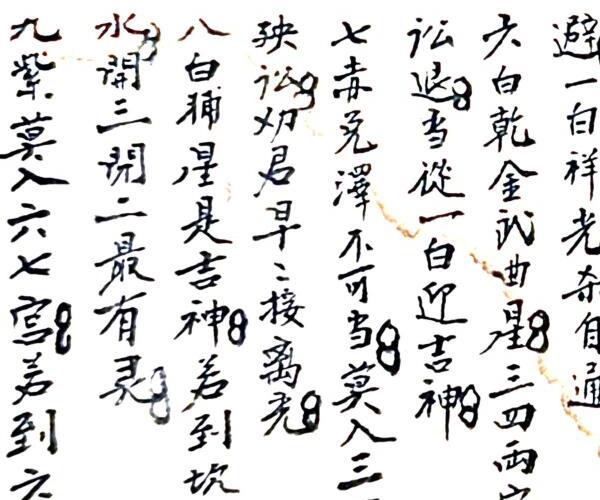 避一白祥光杀自通
六白乾金武曲星三四兩
讼退当從一白迎吉神
七赤兑澤不可当莫入三
殃讼劝君早〻接离光
八白辅星是吉神若到坎
水開三開二最有灵
九紫莫入六七宫若到六